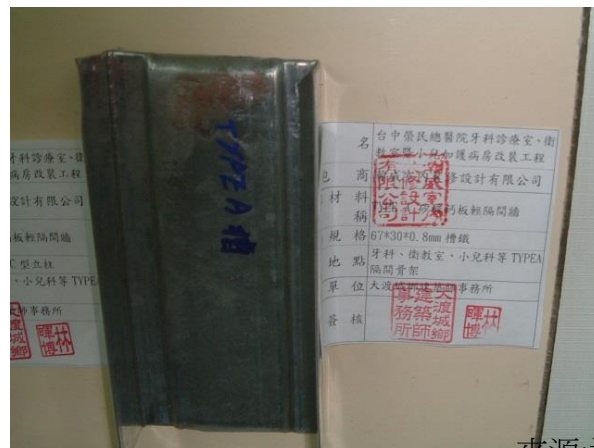 牙科診療室、衛
病房改裝工程
設計有限公司
板輕隔間牆
C型立柱
、小兒科等TYPEA
師事務所
林
暉
博
TYPE A 槽
名 台中榮民總醫院牙科診療室、衛
教室暨小兒加護病房改裝工程
包 商 修設計有限公司
材 料
稱 板輕隔間牆
規 格 67*30*0.8mm 槽鐵
地 點 牙科、衛教室、小兒科等TYPEA
隔間骨架
單 位 大渡城鄉建築師事務所
簽 核
有限公司
修設計
大渡城鄉
建築師
事務所
林
暉
博
來源: